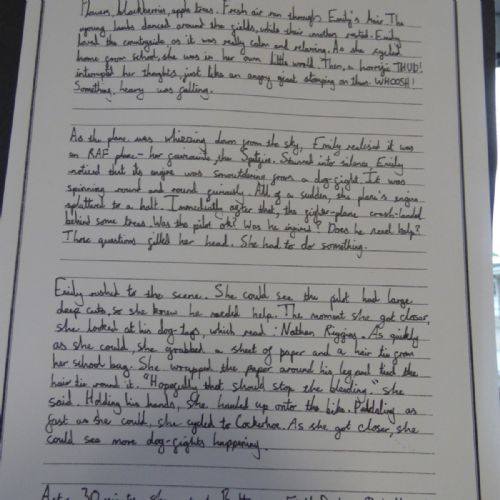 Flowers, blackberries, apple trees. Fresh air ran through Emily's hair. The
young lambs danced around the fields, while their mothers rested. Emily
loved the countryside, as it was really calm and relaxing. As she cycled
home from school, she was in her own little world. Then, a horrific THUD!
interrupted her thoughts, just like an angry giant stomping on them. WHOOSH!
Something heavy was falling.
As the plane was whizzing down from the sky, Emily realised it was
an RAF plane - her favourite, the Spitfire. Stunned into silence, Emily
noticed that its engine was smouldering from a dog-fight. It was
spinning round and round furiously. All of a sudden, the plane's engine
spluttered to a halt. Immediately after that, the fighter-plane crash-landed
behind some trees. Was the pilot ok? Was he injured? Does he need help?
These questions filled her head. She had to do something.
Emily rushed to the scene. She could see the pilot had large
deep cuts, so she knew he needed help. The moment she got closer,
she looked at his dog-tags, which read: Nathan Riggins. As quickly
as she could, she grabbed a sheet of paper and a hair tie from
her school bag. She wrapped the paper around his leg and tied the
hair tie round it. "Hopefully that should stop the bleeding." she
said. Holding his hands, she hauled up onto the bike. Peddaling as
fast as she could, she cycled to Cockerhoe. As she got closer, she
could see more dog-fights happening.
30